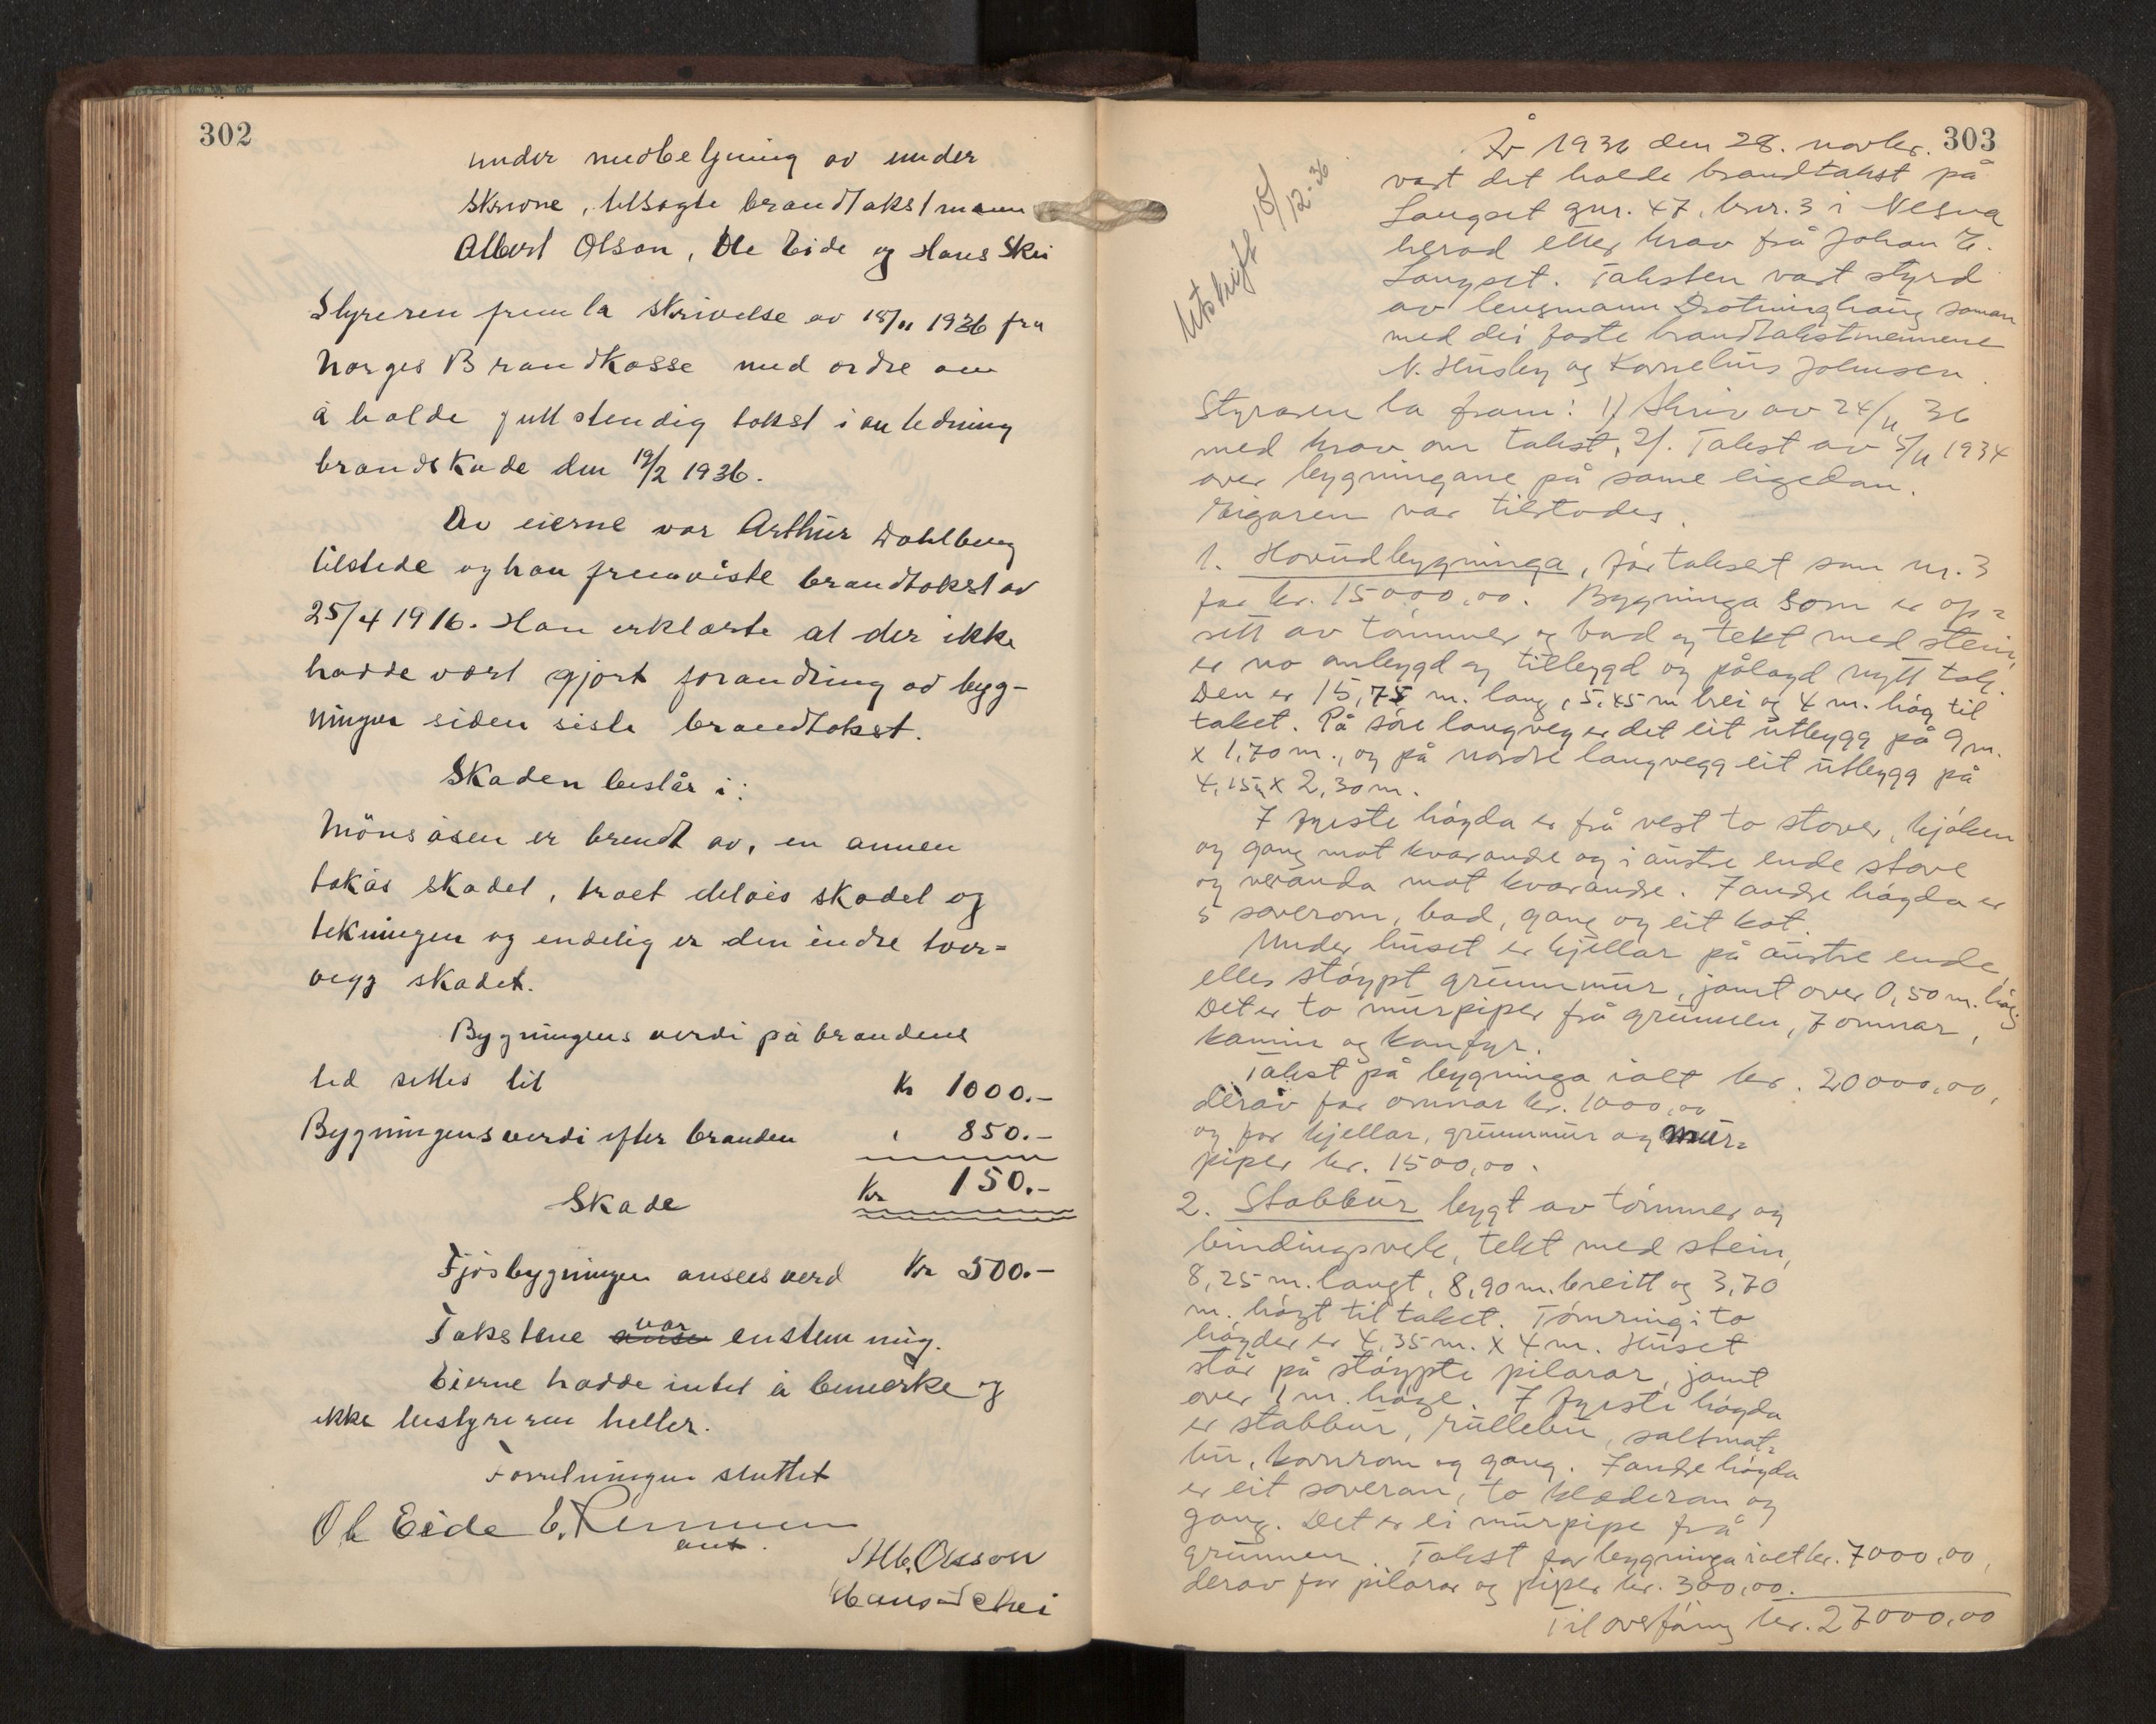 302
under medbetjening av under
skrevne, tilsagte brandtakstmenn
Albert Olson, Ole Eide og Hans Skei
Styreren fremla skrivelse av 18/11 1936 fra
Norges Brandkasse med ordre om
å holde fullstendig takst i anledning
brandskade den 19/2 1936.
Av eierne var Arthur Dahlberg
tilstede og han fremviste brandtakst av
25/4 1916. Han erklærte at der ikke
hadde vært gjort forandring av byg-
ningen siden siste brandtakst.
Skaden består i:
Mønsåsen er brendt av, en annen
takås skadet, troet delvis skadet og
tekningen og endelig er den indre tver=
vegg skadet.
Bygningens verdi på brandens
tid settes til Kr 1000.-
Bygningens verdi efter branden " 850.-
Skade Kr 150.-
Fjøsbygningen ansees verd Kr 500.-
Takstene var enstemmig.
Eierne hadde intet å bemerke og
ikke bestyreren heller.
Forretningen sluttet
Ole Eide E.
aut.
Alb. Olsson
Hans Schei
303
År 1936 den 28. novbr.
vart det halde brandtakst på
Langset gnr. 47, bnr. 3 i Nesna
herad etter krav frå Johan E.
Langset. Taksten vart styrd
av lensmann Drotninghaug saman
med dei faste brandtakstmennene
N. Husby og Kornelius Johnsen.
Utskrift 18/12-36
Styraren la fram: 1) Skriv av 24/11 36
med krav om takst, 2). Takst av 5/11 1934
over bygningane på same eigedom.
Eigaren var tilstades.
1. Hovudbygninga, før taksert som nr. 3
for kr. 15000,00. Bygninga som er op=
sett av tømmer og bord og tekt med stein,
er no ombygd og tilbygd og pålagd nytt tak.
Den er 15,75 m. lang, 5,45 m brei og 4 m. høg til
taket. På søre langveg er det eit utbygg på 9 m.
x 1,70 m., og på nordre langvegg eit utbygg på
4,15 x 2,30 m.
I fyrste høgda er frå vest to stover, kjøken
og gang mot kvarandre og i austre ende stove
og veranda mot kvarandre. I andre høgda er
5 soverom, bad, gang og eit kot.
Under huset er kjellar på austre ende,
elles støypt grunnmur, jamt over 0,50 m. høg.
Det er to murpiper frå grunnen, 7 omnar,
kamin og komfyr.
Takst på bygninga ialt kr. 20000,00,
derav for omnar kr. 1000,00
og for kjellar, grunnmur og mur=
piper kr. 1500,00.
2. Stabbur bygt av tømmer og
bindingsverk, tekt med stein,
8,25 m. langt, 8,90 m. breitt og 3,70
m. høgt til taket. Tømring i to
høgder er 4,35 m. x 4 m. Huset
står på støypte pilarar, jamt
over 1 m. høge. I fyrste høgda
er stabbur, rullebu, saltmat=
bu, kornrom og gang. I andre høgda
er eit soverom, to klæderom og
gang. Det er ei murpipe frå
grunnen. Takst for bygninga ialt kr. 7000,00,
derav for pilarar og piper kr. 300,00.
Til overføring kr. 27000,00